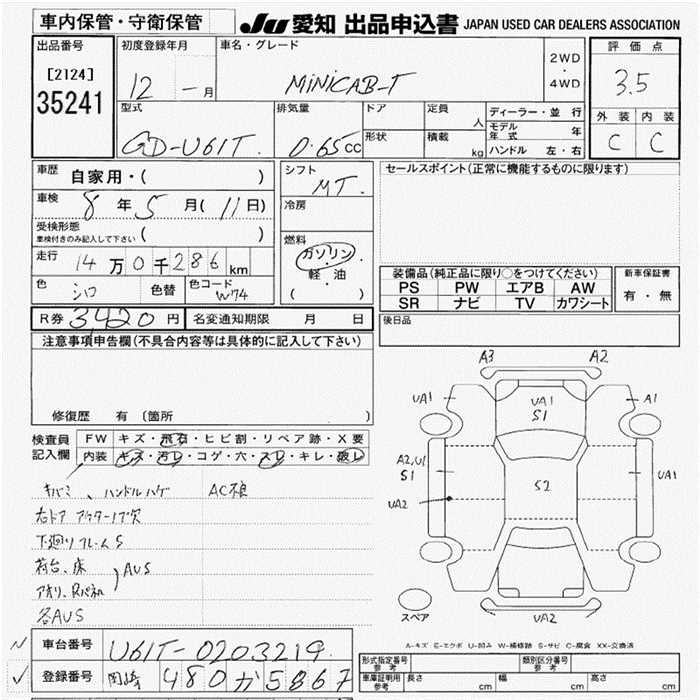 車内保管・守衛保管
JU 愛知 出品申込書 JAPAN USED CAR DEALERS ASSOCIATION
出品番号
[2124]
35241
初度登録年月
12 - 月
車名・グレード
MINICAB-T
2WD
・
4WD
評価点
3.5
外装 内装
C C
型式
GD-U61T.
排気量
0.65cc
ドア
形状
定員
人
積載
kg
ディーラー・並行
モデル年式 年
ハンドル 左・右
車歴
自家用・( )
車検
8年5月(11日)
受検形態
車検付きのみ記入して下さい ( )
走行
14万0千286km
色
シロ
色替
色コード
W74
シフト
MT.
冷房
燃料
ガソリン
軽・油
( )
セールスポイント(正常に機能するものに限ります)
装備品(純正品に限り○をつけてください)
PS PW エアB AW
SR ナビ TV カワシート
新車保証書
有・無
R券 3,420円
名変通知期限 月 日
後日品
注意事項申告欄(不具合内容等は具体的に記入して下さい)
修復歴 有(箇所 )
検査員記入欄
FW キズ・飛石・ヒビ割・リペア跡・X要
内装 キズ・汚レ・コゲ・穴・スレ・キレ・破レ
キバミ、ハンドルハゲ AC不良
右ドア アウターノブ欠
下廻りフレームS
荷台、床
アオリ、Rパネル
)AUS
各AUS
A3 A2
UA1 UA1 A1
S1
A2,U1
S1
UA2
S2
UA1
UA2
スペア
A-キズ E-エクボ U-凹み W-補修跡 S-サビ C-腐食 XX-交換済
車台番号 U61T-0203219.
登録番号 岡崎 480か5867
型式指定番号
参考
類別区分番号
参考
車庫証明用
参考
長さ cm 幅 cm 高さ cm